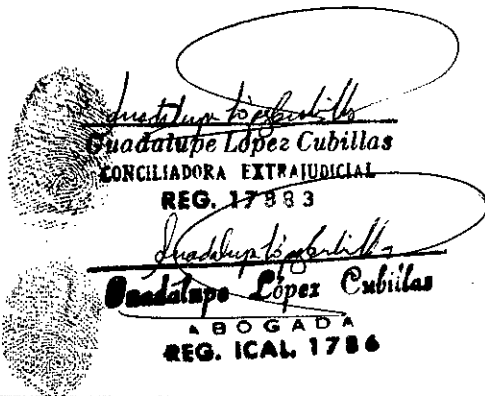 Guadalupe López Cubillas
Guadalupe López Cubillas
CONCILIADORA EXTRAJUDICIAL
REG. 17883
Guadalupe López Cubillas
Guadalupe López Cubillas
ABOGADA
REG. ICAL. 1786